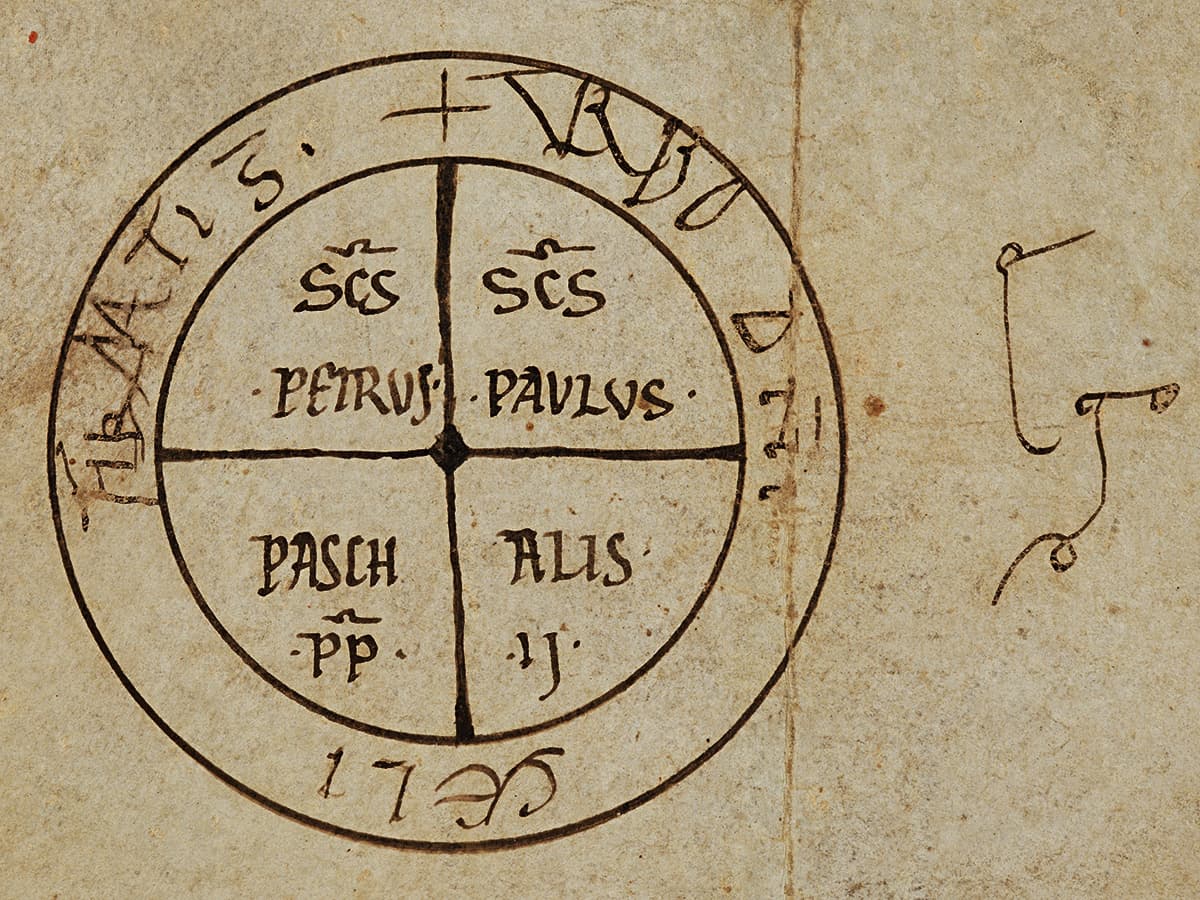 + VERBO DNI CELI FIRMATI S̅.
SC̃S SC̃S
·PETRUS· ·PAULUS·
PASCH ALIS·
·PP̃· ·IJ·